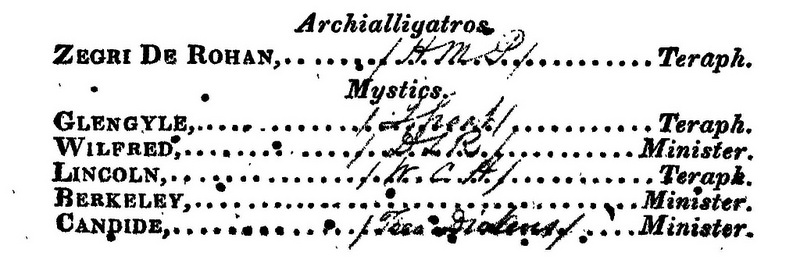 Archialligatros.
ZEGRI DE ROHAN,........./H. M. P./..........Teraph.
Mystics.
GLENGYLE,............/ /............Teraph.
WILFRED,............/D. L. R./............Minister.
LINCOLN,............/W. C. H./............Teraph.
BERKELEY,..............................Minister.
CANDIDE,............/ Dickens/......Minister.